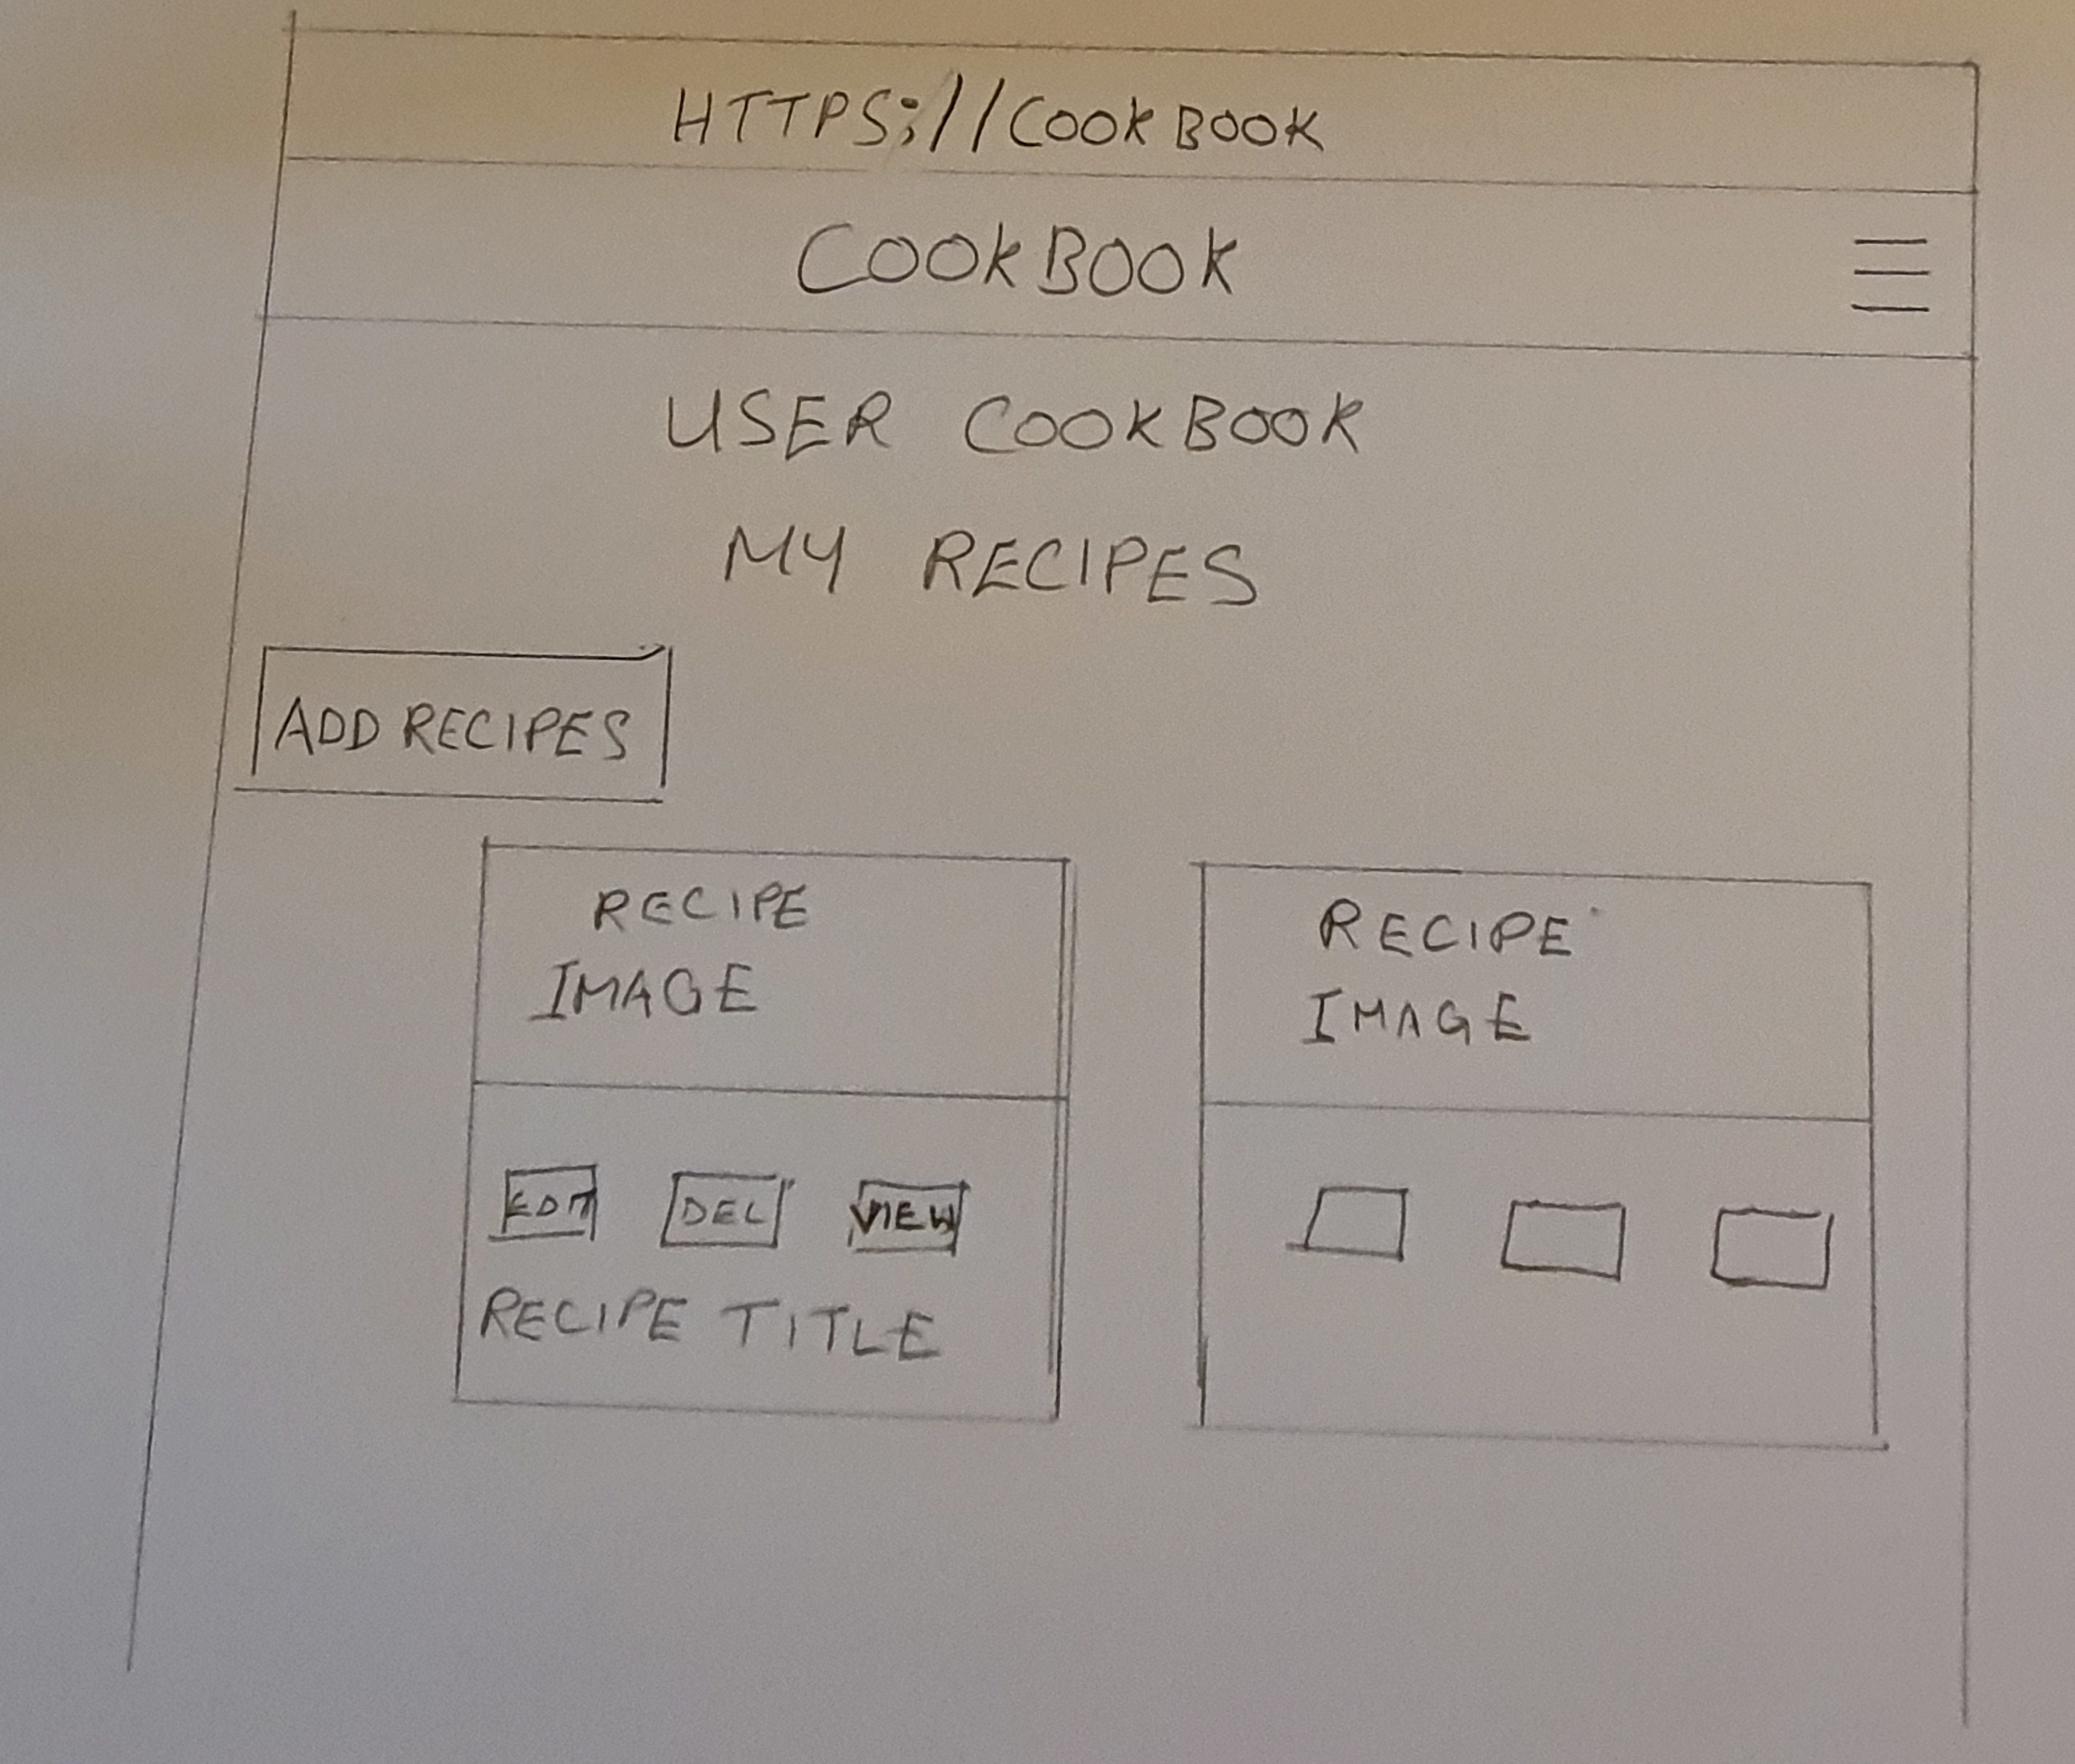 HTTPS://COOKBOOK
COOKBOOK
USER COOKBOOK
MY RECIPES
ADD RECIPES
RECIPE
IMAGE
EDIT DEL VIEW
RECIPE TITLE
RECIPE
IMAGE